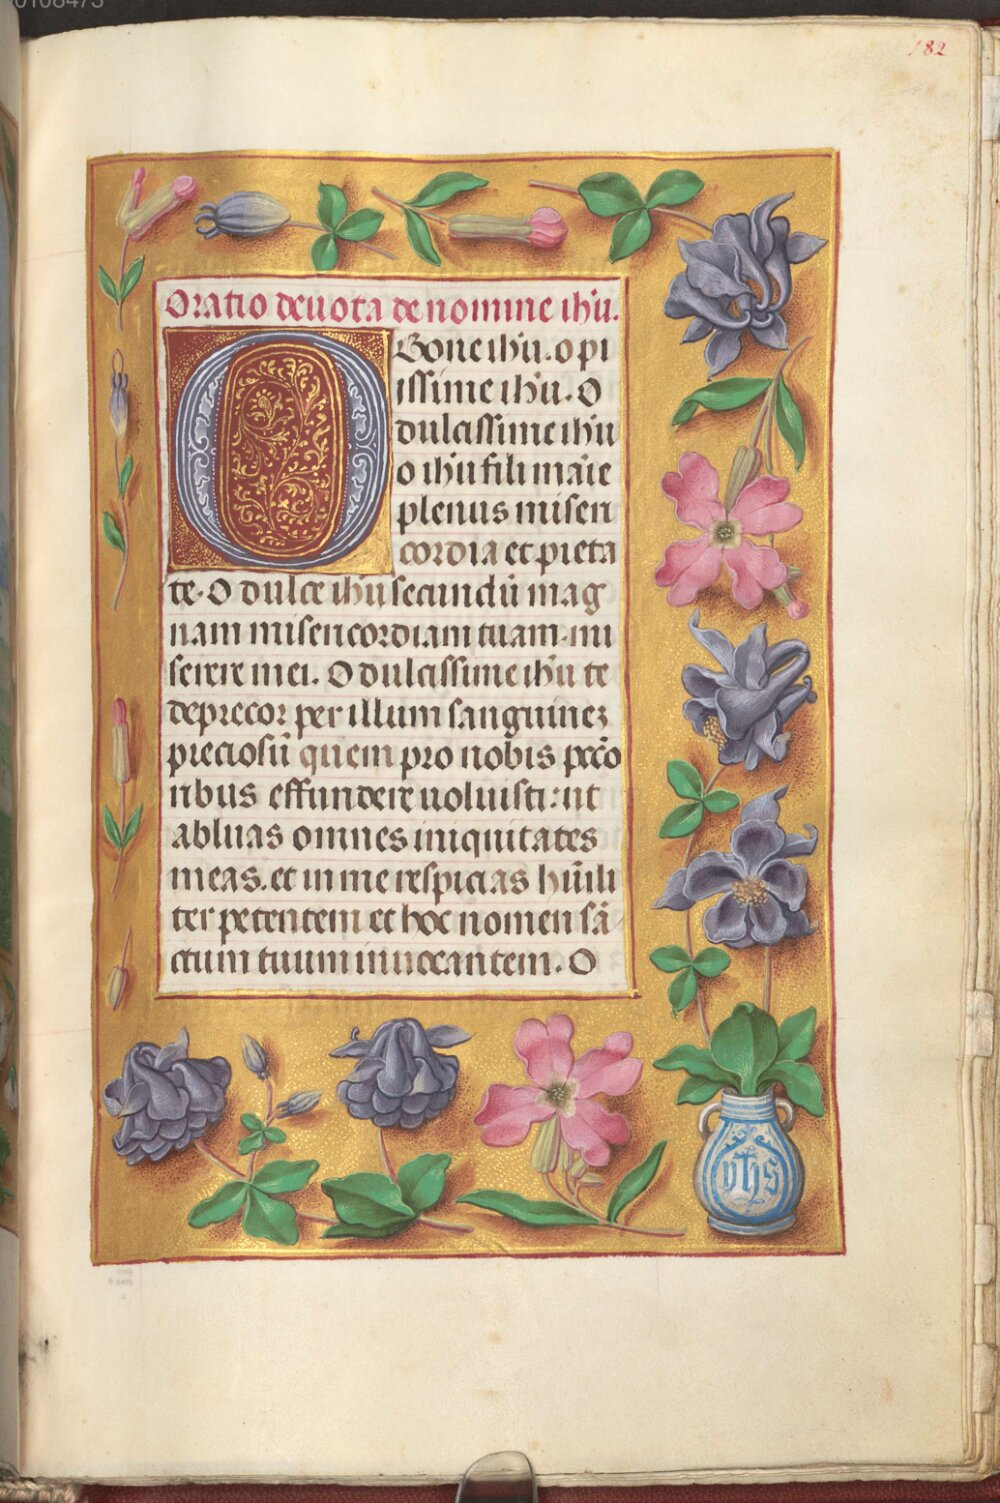 00108473
182
Oratio deuota de nomine ihu.
O Bone ihu. o pi
issime ihu. O
dulcissime ihu
o ihu fili marie
plenus miseri
cordia et pieta
te. O dulce ihu secundū mag
nam misericordiam tuam. mi
serere mei. O dulcissime ihu te
deprecor per illum sanguinez
preciosū quem pro nobis pcc̄o
ribus effundere uoluisti: ut
abluas omnes iniquitates
meas. et in me respicias hūili
ter petentem et hoc nomen sā
ctum tuum inuocantem. O
yhs